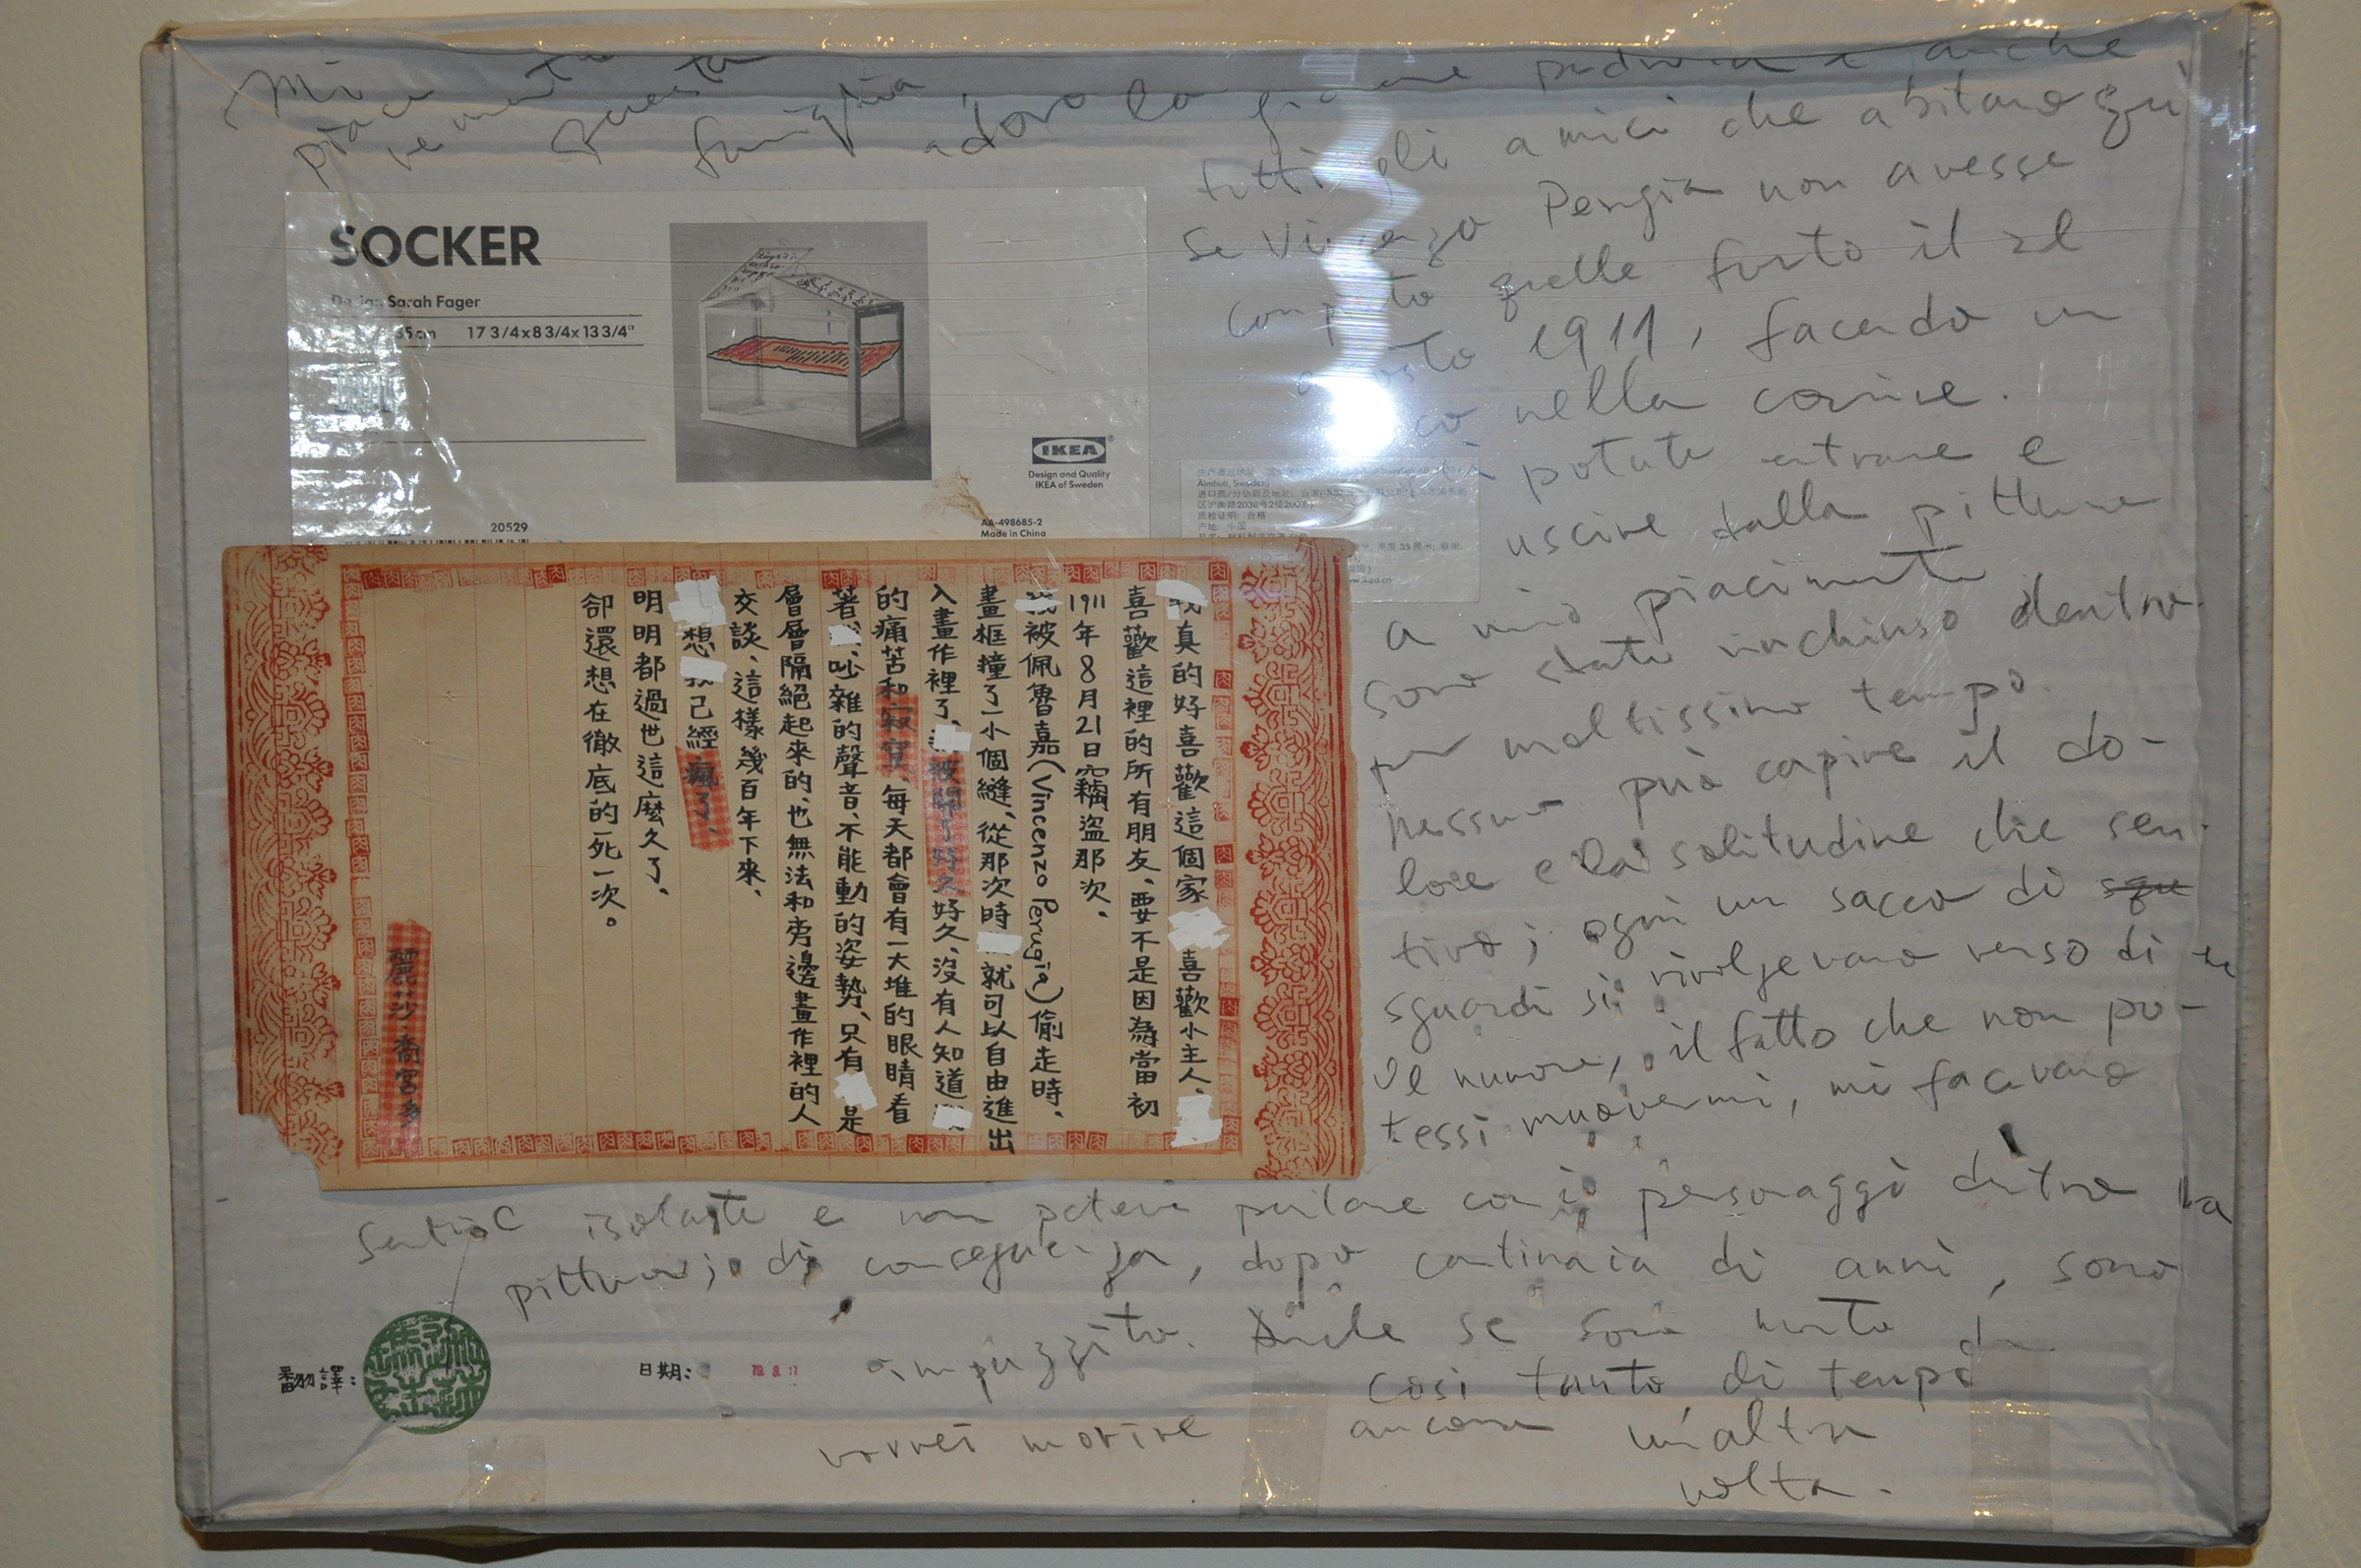 Mi
piace
veramente
questa
famiglia
adoro la padrona e anche
tutti gli amici che abitano qui
se Vincenzo Perugia non avesse
compiuto quello furto il 21
agosto 1911, facendo un
nella cornice.
potuto entrare e
uscire dalla pittura
a mio piacimento
sono stato rinchiuso dentro
per moltissimo tempo.
nessuno può capire il do-
lore e la solitudine che sen-
tivo; ogni un sacco di
sguardi si rivolgevano verso di te
Il rumore, il fatto che non po-
tessi muovermi, mi facevano
sentire isolato e non potevo parlare con i personaggi dentro la
pittura; di conseguenza, dopo centinaia di anni, sono
impazzito. Anche se sono morto da
così tanto di tempo
vorrei morire ancora un'altra
volta.
SOCKER
Design Sarah Fager
35 cm 17 3/4x8 3/4x13 3/4"
IKEA®
Design and Quality
IKEA of Sweden
20529
AA-498685-2
Made in China
Älmhult, Sweden)
质检证明: 合格
产地: 中国
我真的好喜歡這個家 喜歡小主人、
喜歡這裡的所有朋友、要不是因為當初
1911年8月21日竊盜那次。
我被佩魯嘉(Vincenzo Perugia)偷走時、
畫框撞了一小個縫、從那次時 就可以自由進出
入畫作裡了、 被關了好久好久、沒有人知道
的痛苦和寂寞、每天都會有一大堆的眼睛看
著 、吵雜的聲音、不能動的姿勢、只有 是
層層隔絕起來的、也無法和旁邊畫作裡的人
交談、這樣幾百年下來、
想我己經瘋了、
明明都過世這麼久了、
卻還想在徹底的死一次。
麗莎·喬宮多
翻譯:
日期: